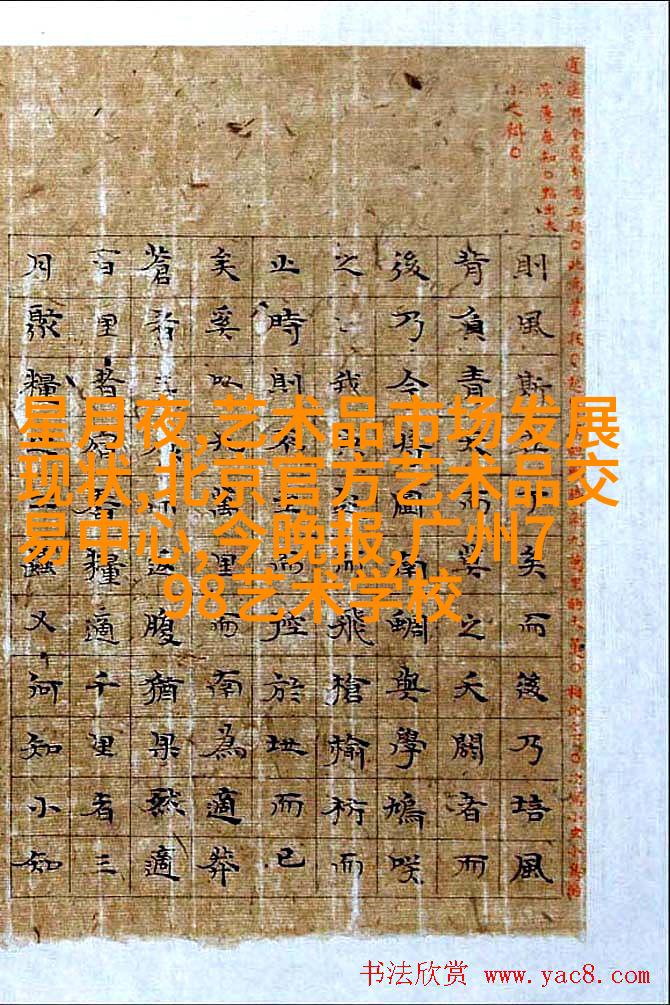 星月夜,艺术品市场发展
现状,北京官方艺术品交
易中心,今晚报,广州7
98艺术学校
則風斯在下矣而後乃培風
背負青天而莫之夭閼者而
後乃今將圖南蜩與學鳩咲
之我而飛槍榆枋而
止時則不至而控於地而已
矣奚以九萬里而南為適莽
蒼者三而返腹猶果然適
百里者宿舂糧適千里者三
月聚糧之二蟲又何知小知
书法欣赏 www.yac8.com